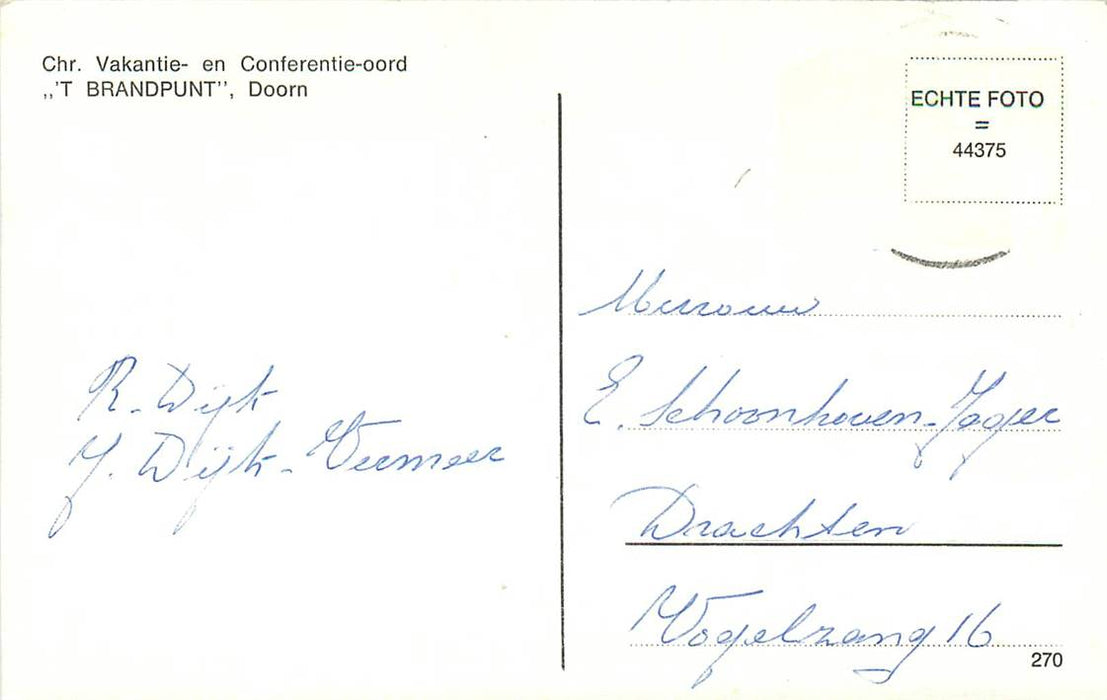 Chr. Vakantie- en Conferentie-oord
,,'T BRANDPUNT'', Doorn
R. Dijk
J. Dijk - Vermeer
ECHTE FOTO
=
44375
Mevrouw
E. Schoonhoven-Jager
Drachten
Vogelzang 16
270